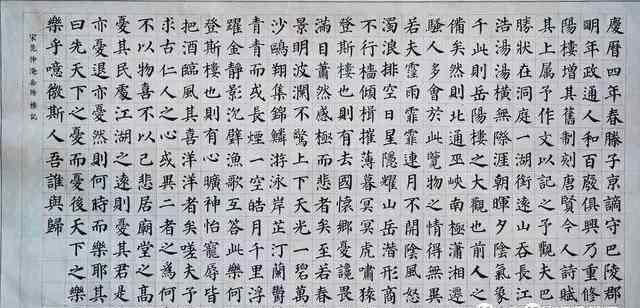 慶曆四年春滕子京謫守巴陵郡
明年政通人和百廢俱興乃重修
陽樓增其舊制刻唐賢今人詩賦
其上屬予作文以記之予觀夫巴
勝狀在洞庭一湖銜遠山吞長江
浩湯湯橫無際涯朝暉夕陰氣象
千此則岳陽樓之大觀也前人之
備矣然則北通巫峽南極瀟湘遷
騷人多會於此覽物之情得無異
若夫霪雨霏霏連月不開陰風怒
濁浪排空日星隱耀山岳潛形商
不行檣傾楫摧薄暮冥冥虎嘯猿
登斯樓也則有去國懷鄉憂讒畏
滿目蕭然感極而悲者矣至若春
景明波瀾不驚上下天光一碧萬
沙鷗翔集錦鱗游泳岸芷汀蘭鬱
青青而或長煙一空皓月千里浮
躍金靜影沉璧漁歌互答此樂何
登斯樓也則有心曠神怡寵辱皆
把酒臨風其喜洋洋者矣嗟夫予
求古仁人之心或異二者之為何
不以物喜不以己悲居廟堂之高
憂其民處江湖之遠則憂其君是
亦憂退亦憂然則何時而樂耶其
曰先天下之憂而憂後天下之樂
樂乎噫微斯人吾誰與歸
宋范仲淹岳陽樓記